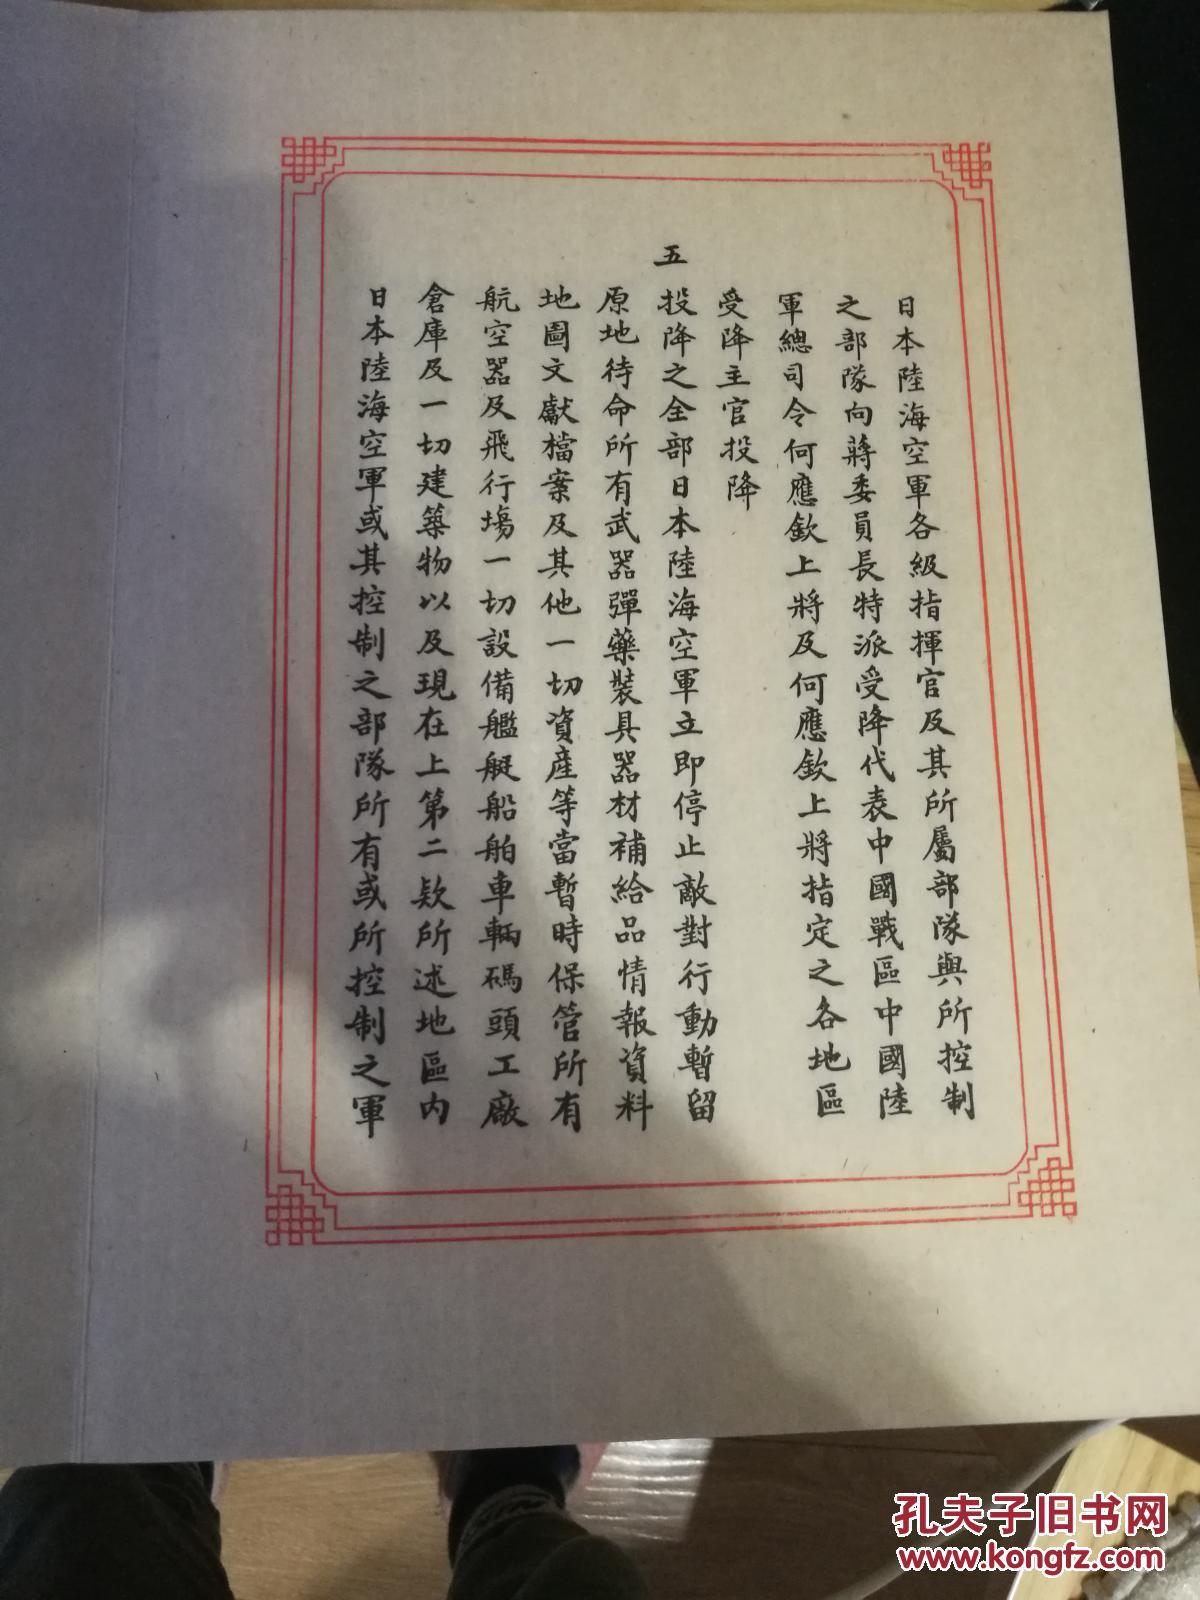 日本陸海空軍各級指揮官及其所屬部隊與所控制
之部隊向蔣委員長特派受降代表中國戰區中國陸
軍總司令何應欽上將及何應欽上將指定之各地區
受降主官投降
五
投降之全部日本陸海空軍立即停止敵對行動暫留
原地待命所有武器彈藥裝具器材補給品情報資料
地圖文獻檔案及其他一切資產等當暫時保管所有
航空器及飛行場一切設備艦艇船舶車輛碼頭工廠
倉庫及一切建築物以及現在上第二款所述地區内
日本陸海空軍或其控制之部隊所有或所控制之軍
孔夫子旧书网
www.kongfz.com